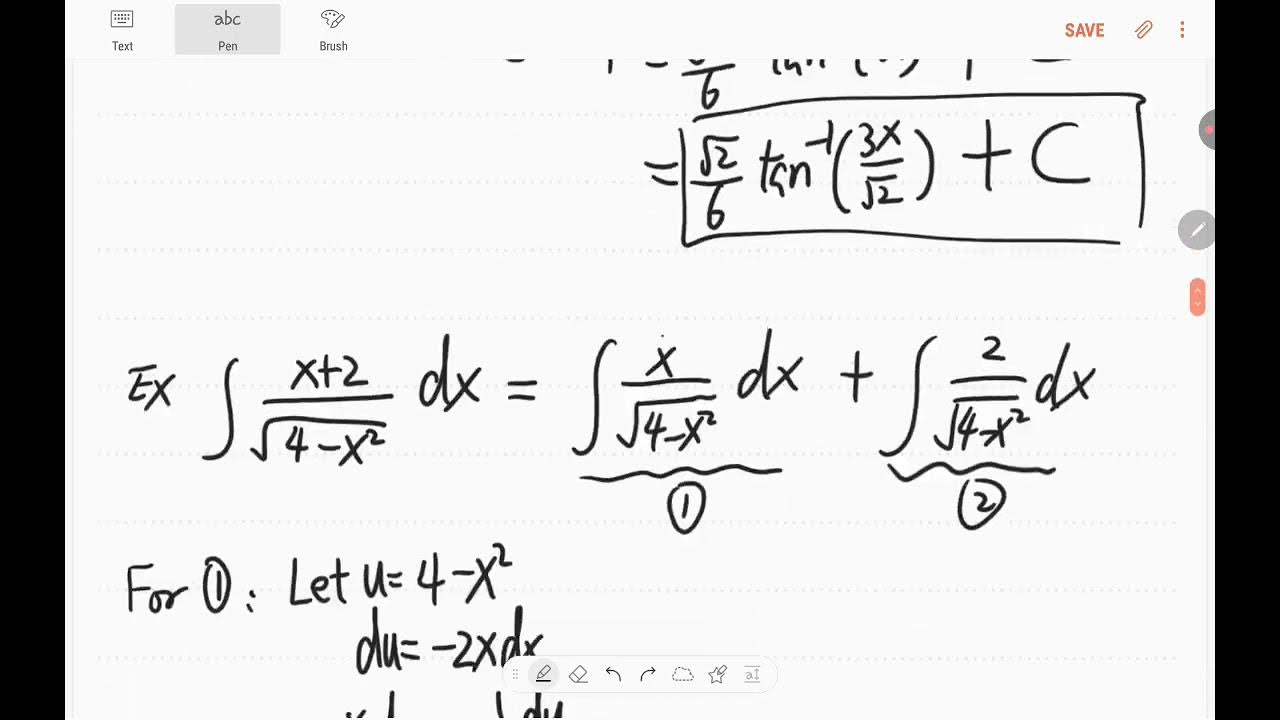 Text abc Pen Brush SAVE
6
= √2/6 tan⁻¹(3x/√2) + C
Ex ∫ x+2/√4-x² dx = ∫ x/√4-x² dx + ∫ 2/√4-x² dx
① ②
For ①: Let u= 4-x²
du= -2xdx
du